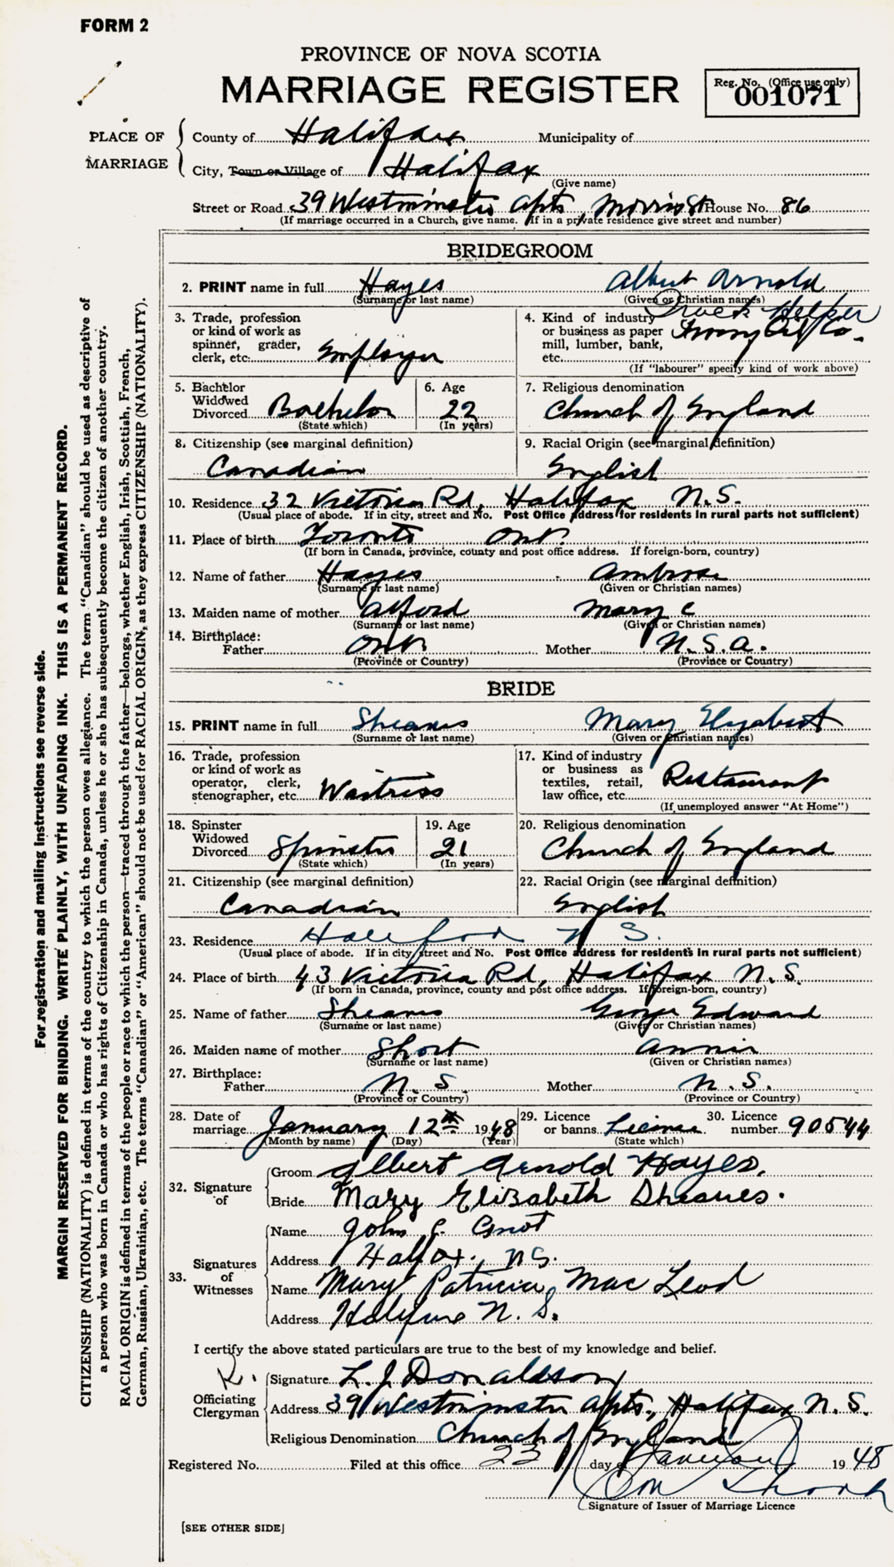 FORM 2
PROVINCE OF NOVA SCOTIA
MARRIAGE REGISTER
Reg. No. (Office use only)
001071
PLACE OF MARRIAGE
County of Halifax Municipality of
City, Town or Village of Halifax
(Give name)
Street or Road 39 Westminster Apts, Morris St House No. 86
(If marriage occurred in a Church, give name. If in a private residence give street and number)
BRIDEGROOM
2. PRINT name in full Hayes Albert Arnold
(Surname or last name) (Given or Christian names)
3. Trade, profession or kind of work as spinner, grader, clerk, etc.
4. Kind of industry or business as paper mill, lumber, bank, etc. Truck Helper Irving Oil Co.
(If "labourer" specify kind of work above)
5. Bachelor Widowed Divorced Bachelor
(State which)
6. Age 22
(In years)
7. Religious denomination
Church of England
8. Citizenship (see marginal definition)
Canadian
9. Racial Origin (see marginal definition)
English
10. Residence 32 Victoria Rd, Halifax N.S.
(Usual place of abode. If in city, street and No. Post Office address for residents in rural parts not sufficient)
11. Place of birth Toronto Ont
(If born in Canada, province, county and post office address. If foreign-born, country)
12. Name of father Hayes Ambrose
(Surname or last name) (Given or Christian names)
13. Maiden name of mother Alford Mary C
(Surname or last name) (Given or Christian names)
14. Birthplace:
Father Ont Mother
(Province or Country) (Province or Country)
BRIDE
15. PRINT name in full Sheaves Mary Elizabeth
(Surname or last name) (Given or Christian names)
16. Trade, profession or kind of work as operator, clerk, stenographer, etc. Waitress
17. Kind of industry or business as textiles, retail, law office, etc. Restaurant
(If unemployed answer "At Home")
18. Spinster Widowed Divorced Spinster
(State which)
19. Age 21
(In years)
20. Religious denomination
Church of England
21. Citizenship (see marginal definition)
Canadian
22. Racial Origin (see marginal definition)
English
23. Residence Halifax N S.
(Usual place of abode. If in city, street and No. Post Office address for residents in rural parts not sufficient)
24. Place of birth 43 Victoria Rd, Halifax N.S.
(If born in Canada, province, county and post office address. If foreign-born, country)
25. Name of father Sheaves George Edward
(Surname or last name) (Given or Christian names)
26. Maiden name of mother Short Annie
(Surname or last name) (Given or Christian names)
27. Birthplace:
Father N.S. Mother N.S.
(Province or Country) (Province or Country)
28. Date of marriage January 12th 1948
(Month by name) (Day) (Year)
29. Licence or banns License
(State which)
30. Licence number 90544
32. Signature of
Groom Albert Arnold Hayes.
Bride Mary Elizabeth Sheaves.
33. Signatures of Witnesses
Name John
Address Halifax. N.S.
Name Mary Patricia Mac Leod
Address Halifax N. S.
I certify the above stated particulars are true to the best of my knowledge and belief.
Officiating Clergyman
Signature L. J Donaldson
Address 39 Westminster Apts., Halifax N. S.
Religious Denomination Church of England
Registered No. Filed at this office 23 day of January 1948
Signature of Issuer of Marriage Licence
[SEE OTHER SIDE]
For registration and mailing instructions see reverse side.
MARGIN RESERVED FOR BINDING. WRITE PLAINLY, WITH UNFADING INK. THIS IS A PERMANENT RECORD.
CITIZENSHIP (NATIONALITY) is defined in terms of the country to which the person owes allegiance. The term "Canadian" should be used as descriptive of
a person who was born in Canada or who has rights of Citizenship in Canada, unless he or she has subsequently become the citizen of another country.
RACIAL ORIGIN is defined in terms of the people or race to which the person—traced through the father—belongs, whether English, Irish, Scottish, French,
German, Russian, Ukrainian, etc. The terms "Canadian" or "American" should not be used for RACIAL ORIGIN, as they express CITIZENSHIP (NATIONALITY).